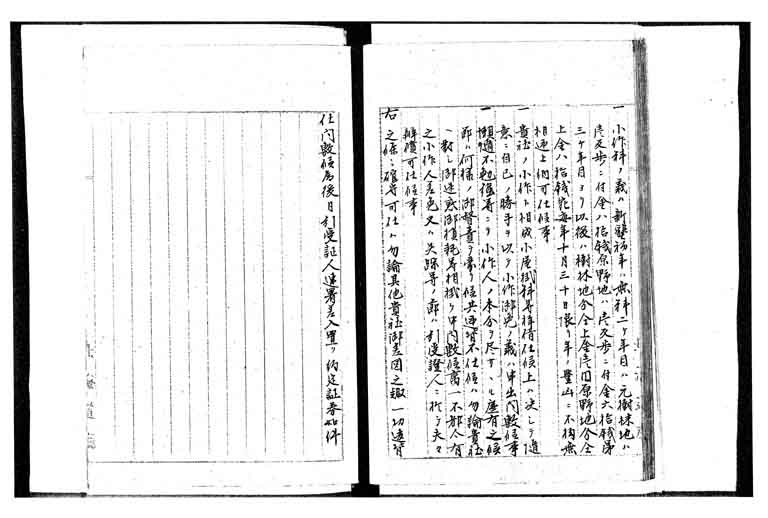 一 小作料ノ義ハ新墾初年ハ無料二ケ年目ハ元樹林地ハ
壱反歩ニ付金八拾銭原野地ハ壱反歩ニ付金六拾銭第
三ケ年目ヨリ以後ハ樹林地分全上金壱円原野地分全
上金八拾銭宛毎年十月三十日限リ年ノ豊凶ニ不拘無
相違上納可仕候事
一 貴社ノ小作ト相成小屋掛料等拝借仕候上ハ決シテ
意ニ自己ノ勝手ヲ以テ小作御免ノ義ハ申出間敷候事
一 懶惰不勉強等ニテ小作人ノ本分ヲ尽サヽル廉有之候
節ハ何様ノ御督責ヲ蒙リ候共違背不仕候ハ勿論貴社
ヘ対シ御迷惑御損耗等相掛ケ申間敷候萬一不都合有
之小作人差免又ハ失踪等ノ節ハ引受證人ニ於テ夫々
辨償可仕候事
右之條々確守可仕ハ勿論其他貴社御差図之趣一切違背
仕間敷候為後日引受証人連署差入置ク約定証券如件